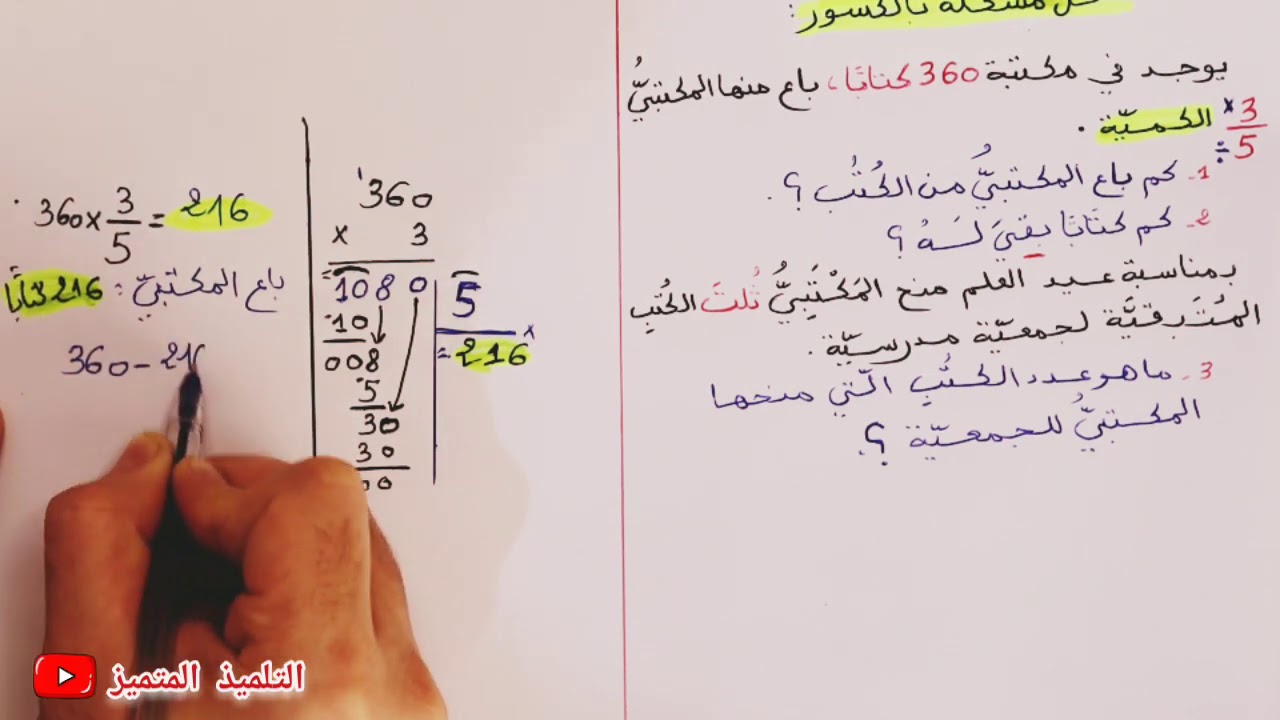 حل مشكلة بالكسور:
يوجد في مكتبة 360 كتابًا، باع منها المكتبيُّ
3/5 الكميّة.
× ÷
1- كم باع المكتبيُّ من الكُتُب ؟
2- كم كتابًا بقيَ لَهُ ؟
بمناسبة عيد العلم منح المَكْتَبِيُّ ثُلثَ الكُتُبِ
المُتَبَقِّيَّة لجمعيّة مدرسيّة.
3- ما هو عدد الكُتُبِ الّتي منحها
المكتبيُّ للجمعيّة ؟
360 × 3/5 = 216
باع المكتبيّ : 216 كتابًا
360 - 216
1
360
× 3
= 1080 | 5
10 | = 216 ×
008
5
30
30
00
التلميذ المتميز